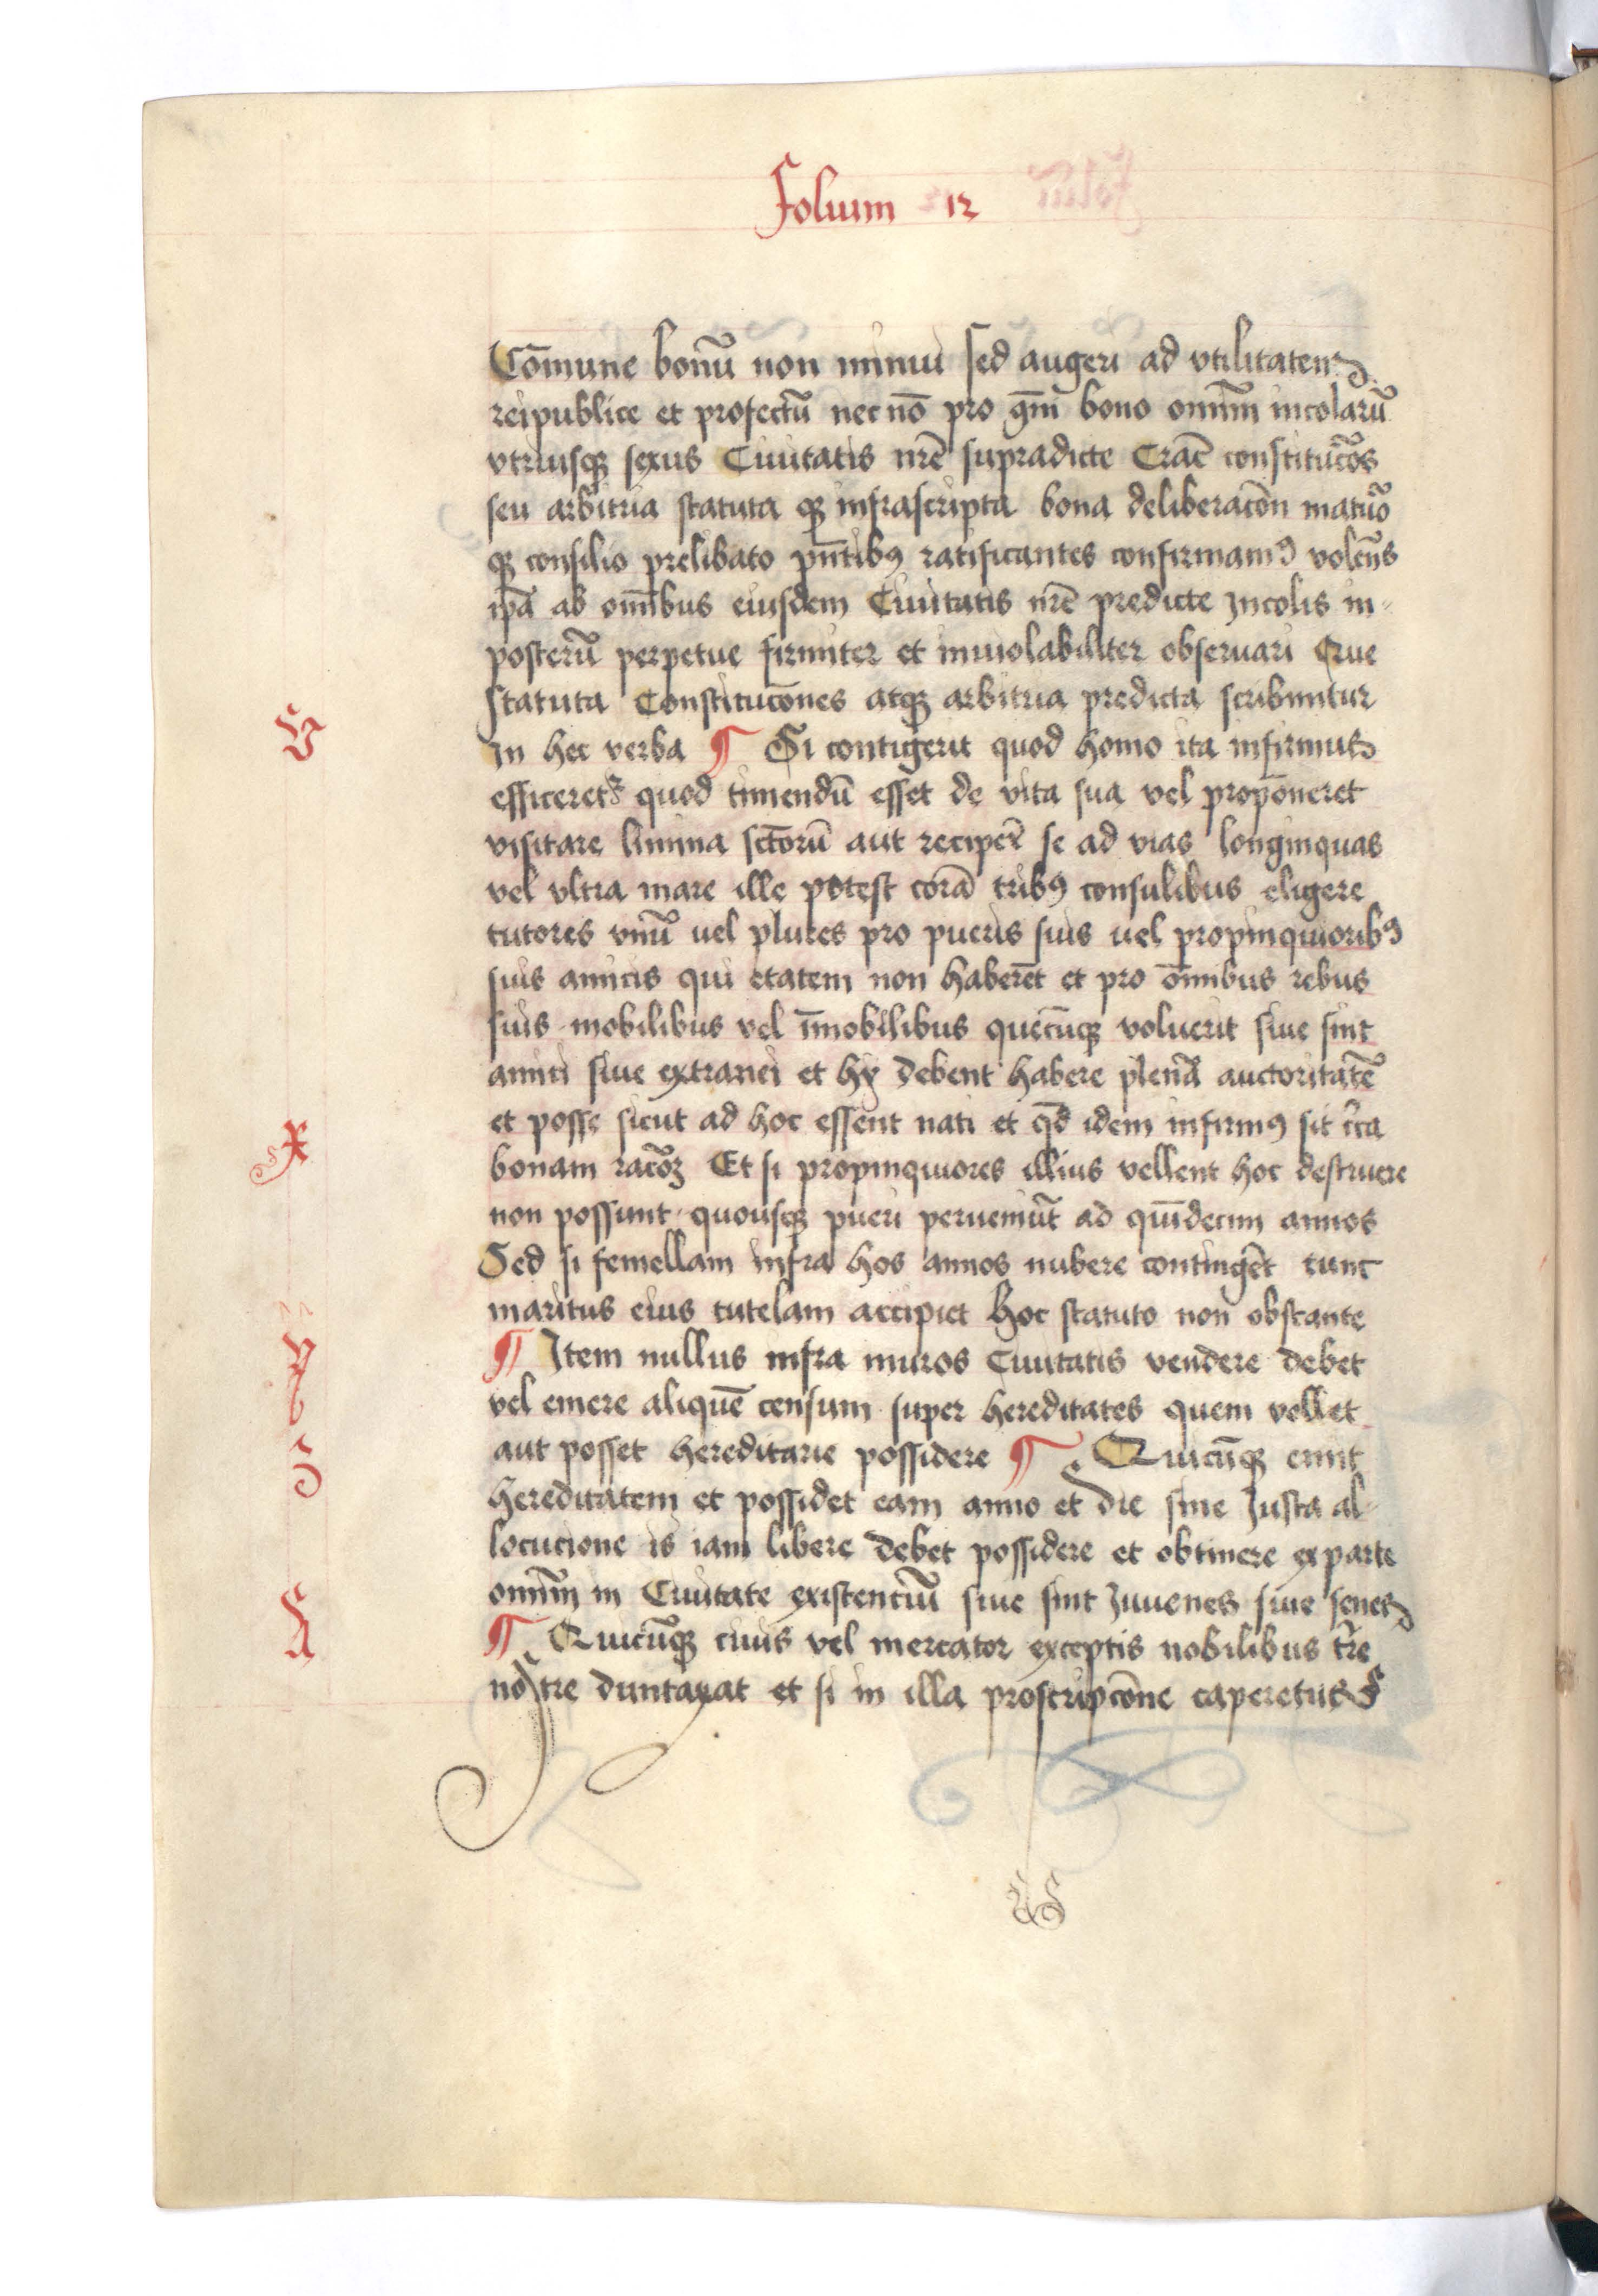 Folium 12
Cōmune bonū non minui sed augeri ad vtilitatem
reipublice et profectū nec nō pro qm̄ bono omīm incolarū
vtriusqꝫ sexus Ciuitatis nrē supradicte Crac̄ constitucōs
seu arbitria statuta qꝫ infrascripta bona deliberacōn maturo
qꝫ consilio prelibato pn̄tibꝰ ratificantes confirmamꝰ volen̄s
ip̄a ab omībus eiusdem Ciuitatis nrē predicte Incolis in
posterū perpetue firmiter et inuiolabiliter obseruari Que
statuta Constitucōnes atqꝫ arbitria predicta scribuntur
In hec verba ¶ Si contigerit quod homo ita infirmus
efficeretr quod timendū esset de vita sua vel proponeret
visitare limina sctorū aut reciper̄ se ad vias longinquas
vel vltra mare ille potest corā tribꝰ consulibus eligere
tutores vnū uel plures pro pueris suis uel propinquioribꝰ
suis amicis qui etatem non haberēt et pro om̄ibus rebus
suis mobilibus vel īmobilibus quecūqꝫ voluerit siue sint
amici siue extranei et hy debent habere plenā auctoritatē
et posse sicut ad hoc essent nati et qd̄ idem infirmꝰ sit ī̄ca
bonam racōꝫ Et si propinquiores illius vellent hoc destruere
non possunt quousqꝫ pueri perueniūt ad quīdecim annos
Sed si femellam infra hos annos nubere contingēt tunc
maritus eius tutelam accipiet hoc statuto non obstante
¶ Item nullus infra muros Ciuitatis vendere debet
vel emere aliquē censum super hereditates quem vellet
aut posset hereditarie possidere ¶ Quicūqꝫ emit
hereditatem et possidet eam anno et die sine Justa al
locucione is iam libere debet possidere et obtinere ex parte
omīm in Ciuitate existenciū siue sint Juuenes siue senes
¶ Quicūqꝫ ciuis vel mercator exceptis nobilibus tr̄e
nostre duntaxat et si in illa proscripcōne caperetur